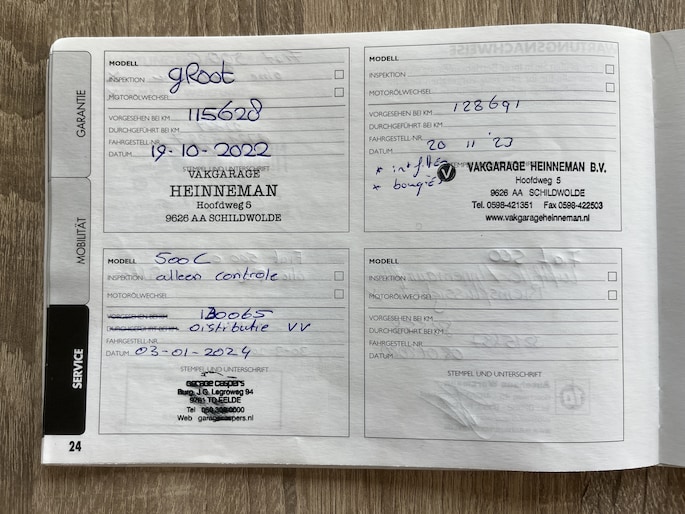 GARANTIE
MOBILITÄT
SERVICE
24
MODELL
INSPEKTION gRoot
MOTORÖLWECHSEL
VORGESEHEN BEI KM 115628
DURCHGEFÜHRT BEI KM
FAHRGESTELL-NR.
DATUM 19-10-2022
STEMPEL UND UNTERSCHRIFT
VAKGARAGE
HEINNEMAN
Hoofdweg 5
9626 AA SCHILDWOLDE
MODELL
INSPEKTION
MOTORÖLWECHSEL
VORGESEHEN BEI KM 128691
DURCHGEFÜHRT BEI KM
FAHRGESTELL-NR.
DATUM 20 11 '23
STEMPEL UND UNTERSCHRIFT
* bougies
VAKGARAGE HEINNEMAN B.V.
Hoofdweg 5
9626 AA SCHILDWOLDE
Tel. 0598-421351 Fax 0598-422503
www.vakgarageheinneman.nl
MODELL 500C
INSPEKTION alleen controle
MOTORÖLWECHSEL
VORGESEHEN BEI KM 130065
DURCHGEFÜHRT BEI KM Distributie VV
FAHRGESTELL-NR.
DATUM 03-01-2024
STEMPEL UND UNTERSCHRIFT
garage caspers
Burg. J.G. Legroweg 94
9761 TD EELDE
Tel
Web garagecaspers.nl
MODELL
INSPEKTION
MOTORÖLWECHSEL
VORGESEHEN BEI KM
DURCHGEFÜHRT BEI KM
FAHRGESTELL-NR.
DATUM
STEMPEL UND UNTERSCHRIFT